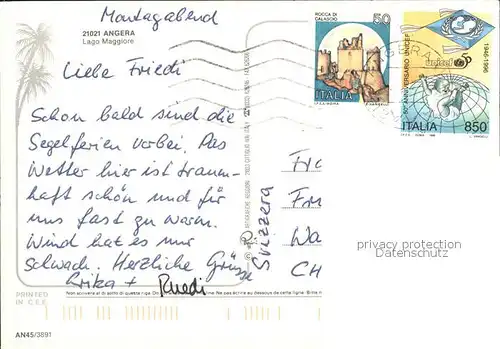 Montagabend
21021 ANGERA
Lago Maggiore
Liebe Friedi
Schon bald sind die
Segelferien vorbei. Das
Wetter hier ist traum-
haft schön und für
uns fast zu warm.
Wind hat es nur
schwach. Herzliche Grüsse
Erika + Ruedi
ROCCA DI
CALASCIO
50
ITALIA
ANNIVERSARIO UNICEF
1946-1996
unicef
ITALIA 850
Svizzera
Fr
Fr
Wa
CH
privacy protection
Datenschutz
PRINTED
IN C.E.E.
Non scrivere al di sotto di questa riga
Ne pas écrire au dessous de cette ligne
AN45/3891